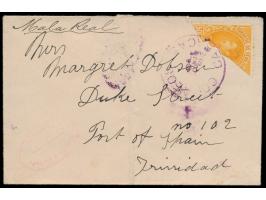 Mala Real
Mrs
Margret Dobson
Duke Street
no 102
Port of Spain
Trinidad